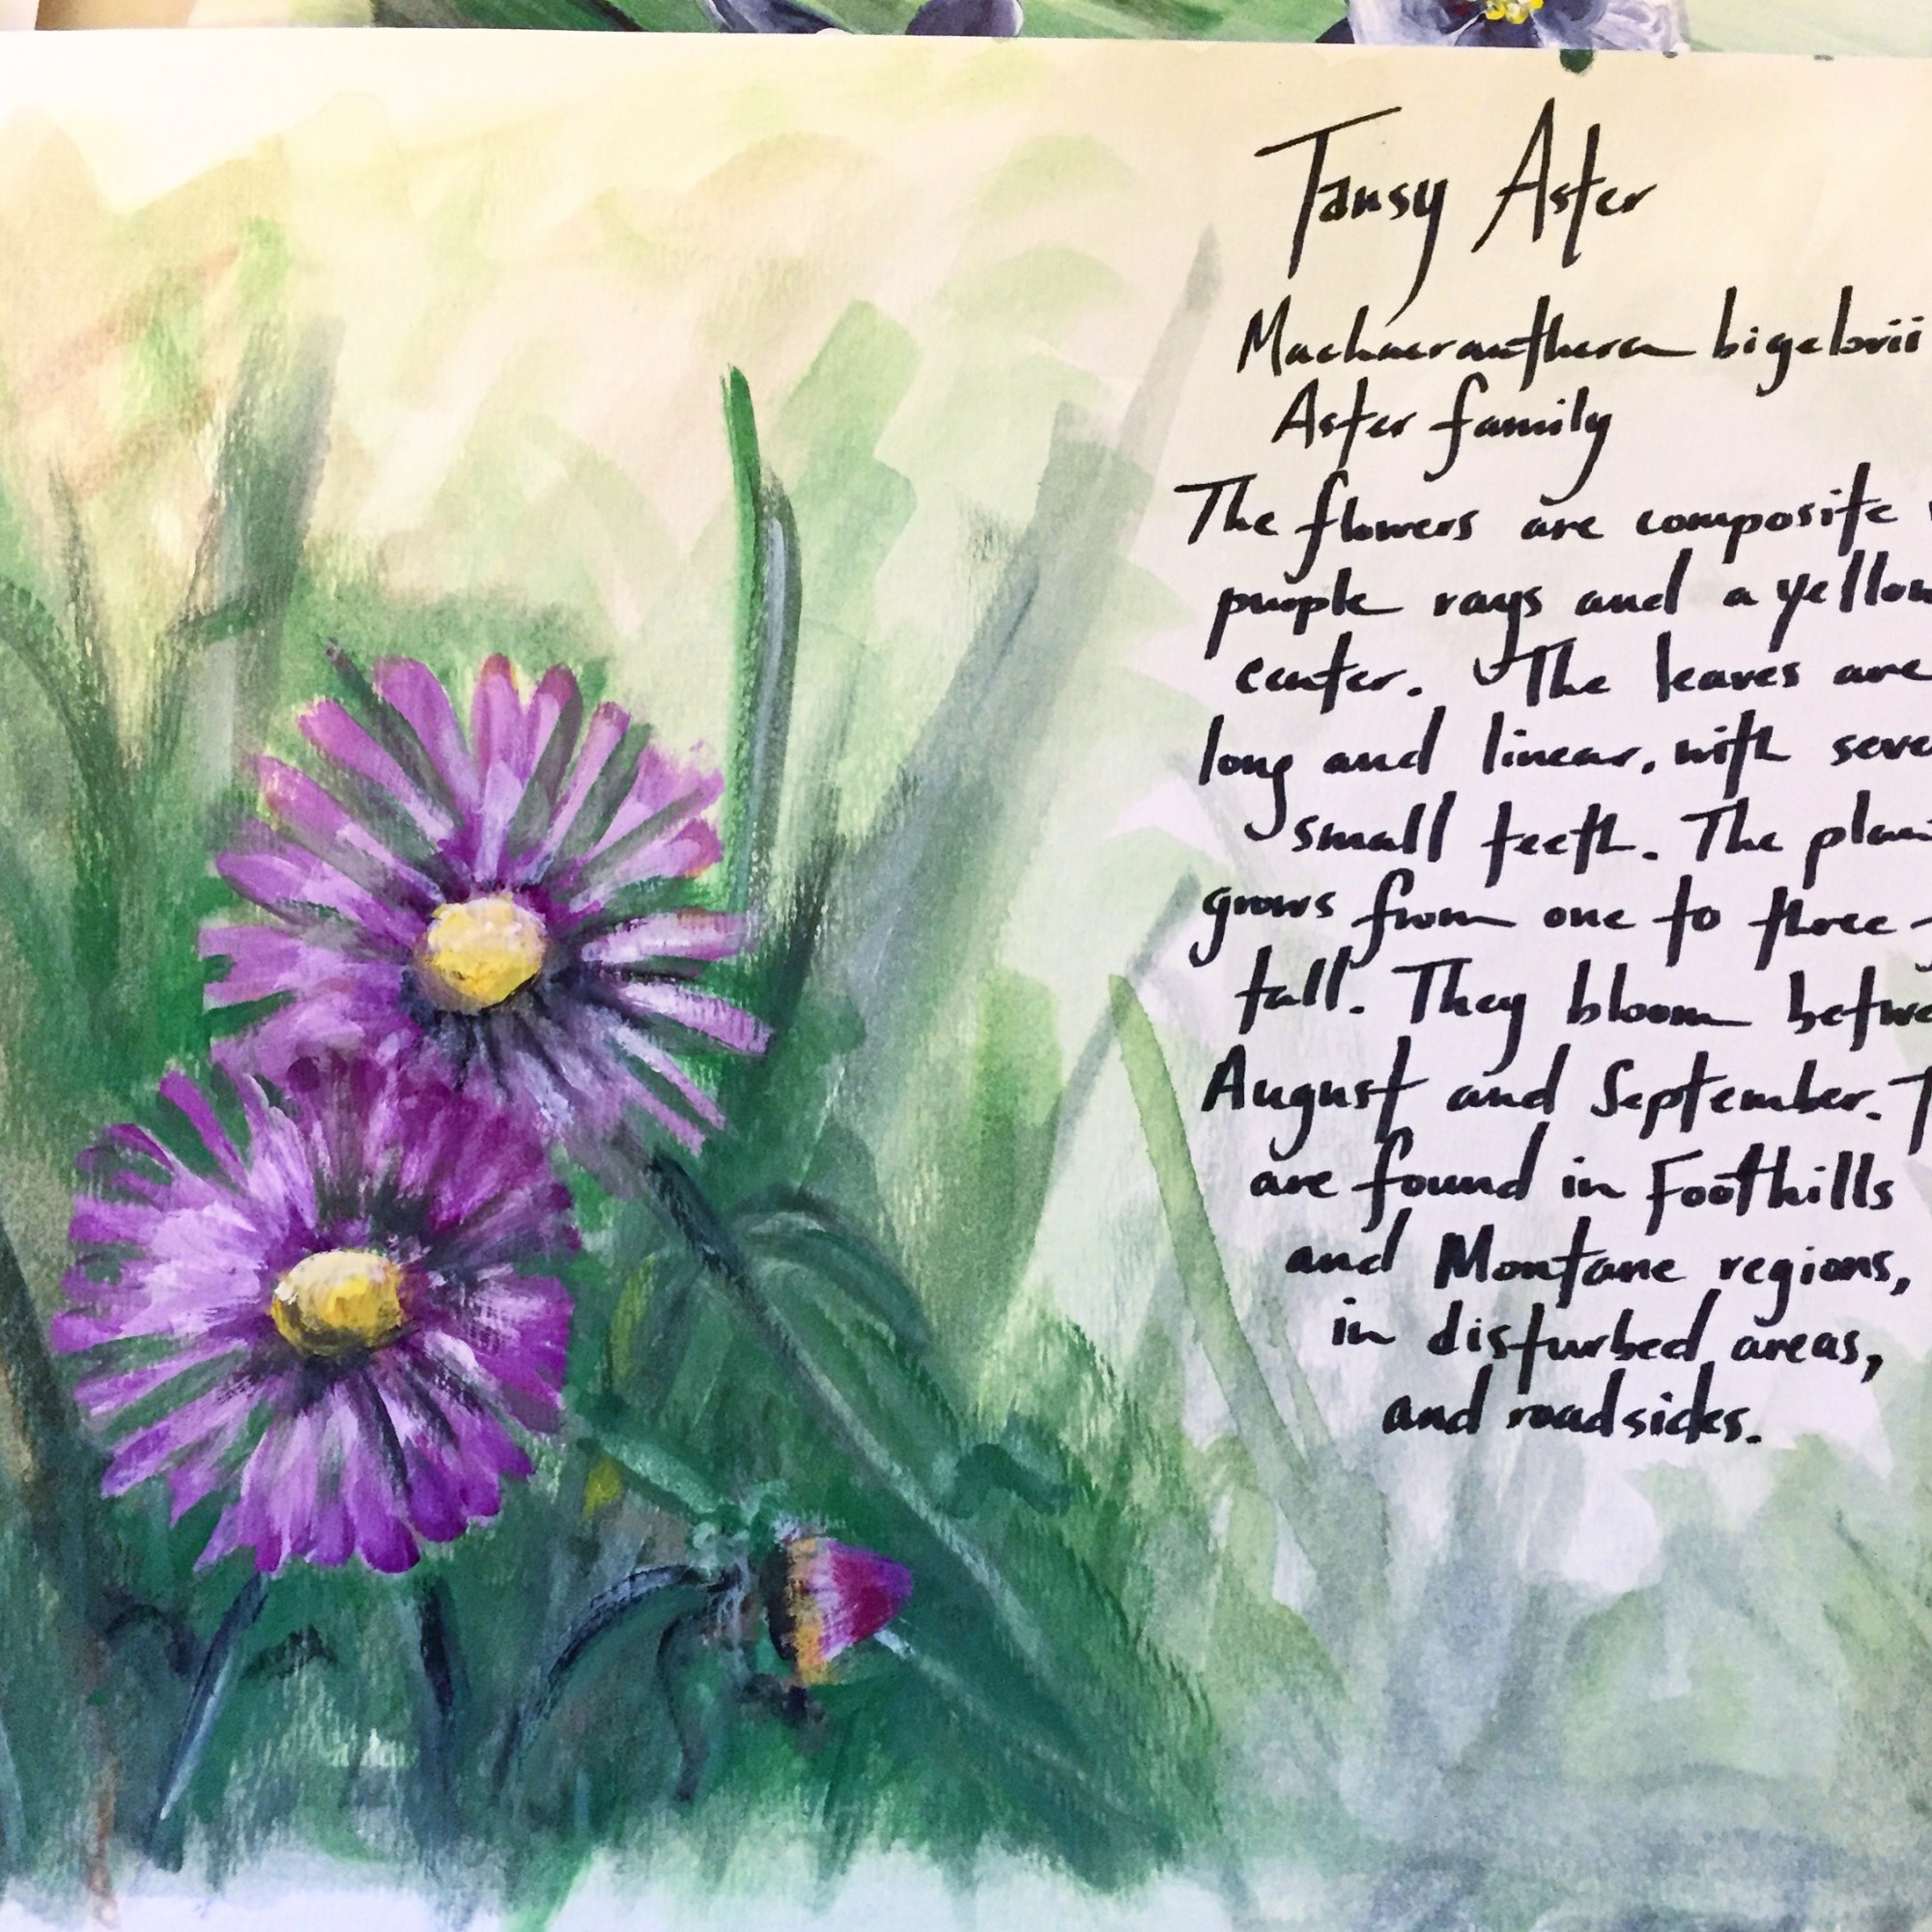 Tansy Aster
Machaeranthera bigelovii
Aster family
The flowers are composite
purple rays and a yellow
center. The leaves are
long and linear. with seve
small teeth. The plan
grows from one to three
tall. They bloom betwe
August and September. T
are found in Foothills
and Montane regions,
in disturbed areas,
and roadsides.